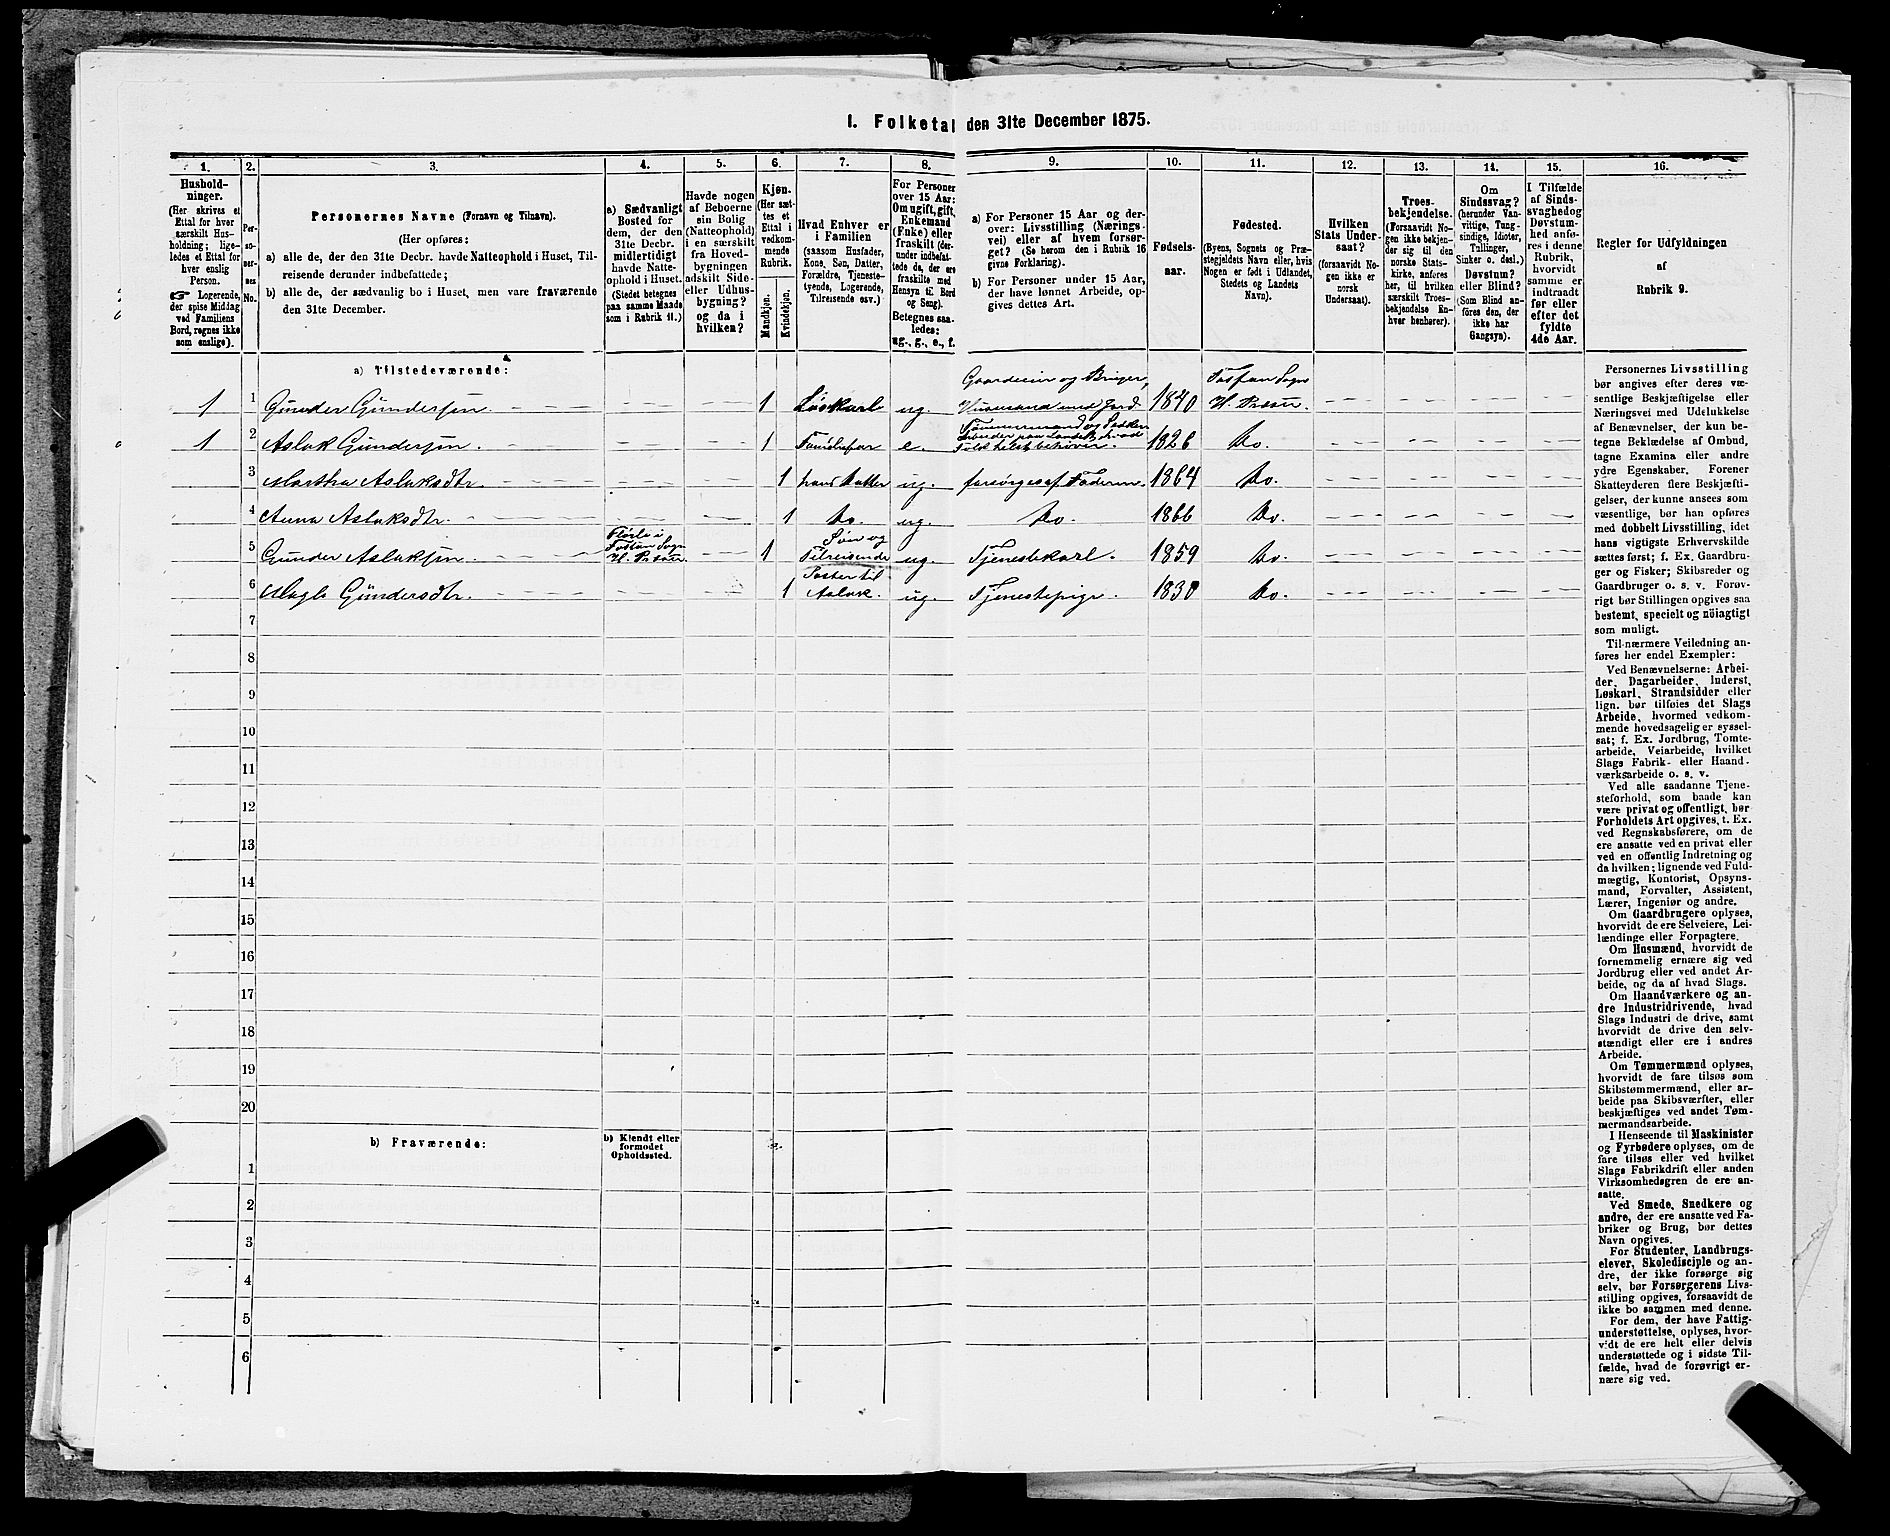 I. Folketal den 31te December 1875.
1.
2.
3.
4.
5.
6.
7.
8.
9.
10.
11.
12.
13.
14.
15.
16.
Hushold-
ninger.
(Her skrives et
Ettal for hver
særskilt Hus-
holdning; lige-
ledes et Ettal for
hver enslig
Person.
☞ Logerende,
der spise Middag
ved Familiens
Bord, regnes ikke
som enslige).
Per-
so-
ner-
nes
No.
Personernes Navne (Fornavn og Tilnavn).
(Her opføres:
a) alle de, der den 31te Decbr. havde Natteophold i Huset, Til-
reisende derunder indbefattede;
b) alle de, der sædvanlig bo i Huset, men vare fraværende
den 31te December.
a) Sædvanligt
Bosted for
dem, der den
31te Decbr.
midlertidigt
havde Natte-
ophold i Huset.
(Stedet betegnes
paa samme Maade
som i Rubrik 11.)
Havde nogen
af Beboerne
sin Bolig
(Natteophold)
i en særskilt
fra Hoved-
bygningen
adskilt Side-
eller Udhus-
bygning?
og da i
hvilken?
Kjøn.
(Her sæt-
tes et
Ettal i
vedkom-
mende
Rubrik.
Mandkjøn.
Kvindekjøn.
Hvad Enhver er
i Familien
(saasom Husfader,
Kone, Søn, Datter,
Forældre, Tjeneste-
tyende, Logerende,
Tilreisende osv.)
For Personer
over 15 Aar:
Om ugift, gift,
Enkemand
(Enke) eller
fraskilt (der-
under indbefat-
tede de, der ere
fraskilte med
Hensyn til Bord
og Seng).
Betegnes saa-
ledes:
ug., g., e., f.
a) For Personer 15 Aar og der-
over: Livsstilling (Nærings-
vei) eller af hvem forsør-
get? (Se herom den i Rubrik 16
givne Forklaring).
b) For Personer under 15 Aar,
der have lønnet Arbeide, op-
gives dettes Art.
Fødsels-
aar.
Fødested.
(Byens, Sognets og Præ-
stegjeldets Navn eller, hvis
Nogen er født i Udlandet,
Stedets og Landets
Navn).
Hvilken
Stats Under-
saat?
(forsaavidt No-
gen ikke er
norsk
Undersaat).
Troes-
bekjendelse.
(Forsaavidt No-
gen ikke bekjen-
der sig til den
norske Stats-
kirke, anføres
her, til hvilken
særskilt Troes-
bekjendelse En-
hver henhører).
Om
Sindssvag?
(herunder Van-
vittige, Tung-
sindige, Idioter,
Tullinger,
Sinker o. desl.)
Døvstum?
eller Blind?
(Som Blind an-
føres den, der
ikke har
Gangsyn).
I Tilfælde
af Sinds-
svaghed og
Døvstum-
hed anfø-
res i denne
Rubrik,
hvorvidt
samme er
indtraadt
før eller
efter det
fyldte
4de Aar.
Regler for Udfyldningen
af
Rubrik 9.
a) Tilstedeværende:
1 1 Gunder Gundersen 1 Løskarl ug. Gaardeier og Bruger, Husmand med Jord 1840 Tostan Sogn
1 2 Aslak Gundersen. 1 e. 1826 Do.
3 Marthra Aslaksdtr. 1 hans Datter ug. forsørges af Faderen. 1864 Do.
4 Anna Aslaksdtr. 1 Do. ug. Do. 1866 Do.
5 Gunder Aslaksen 1 Søn og Tilreisende ug. Tjenestekarl. 1859 Do.
6 Gundersdtr. 1 Søster til Aslak. ug. Tjenestepige 1830 Do.
7
8
9
10
11
12
13
14
15
16
17
18
19
20
b) Fraværende:
b) Kjendt eller
formodet
Opholdssted.
1
2
3
4
5
6
Personernes Livsstilling
bør angives efter deres væ-
sentlige Beskjæftigelse eller
Næringsvei med Udelukkelse
af Benævnelser, der kun be-
tegne Beklædelse af Ombud,
tagne Examina eller andre
ydre Egenskaber. Forener
Skatteyderen flere Beskjæfti-
gelser, der kunne ansees som
væsentlige, bør han opføres
med dobbelt Livsstilling, idet
hans vigtigste Erhvervskilde
sættes først; f. Ex. Gaardbru-
ger og Fisker; Skibsreder og
Gaardbruger o. s. v. Forøv-
rigt bør Stillingen opgives saa
bestemt, specielt og nöiagtigt
som muligt.
Til nærmere Veiledning an-
føres her endel Exempler:
Ved Benævnelserne: Arbei-
der, Dagarbeider, Inderst,
Løskarl, Strandsidder eller
lign. bør tilføies det Slags
Arbeide, hvormed vedkom-
mende hovedsagelig er syssel-
sat; f. Ex. Jordbrug, Tomte-
arbeide, Veiarbeide, hvilket
Slags Fabrik- eller Haand-
værksarbeide o. s. v.
Ved alle saadanne Tjene-
steforhold, som baade kan
være privat og offentligt, bør
Forholdets Art opgives, t. Ex.
ved Regnskabsførere, om de
ere ansatte ved en privat eller
ved en offentlig Indretning og
da hvilken; lignende ved Fuld-
mægtig, Kontorist, Opsyns-
mand, Forvalter, Assistent,
Lærer, Ingeniør og andre.
Om Gaardbrugere oplyses,
hvorvidt de ere Selveiere, Lei-
lændinge eller Forpagtere.
Om Husmænd, hvorvidt de
fornemmelig ernære sig ved
Jordbrug eller ved andet Ar-
beide, og da af hvad Slags.
Om Haandværkere og an-
dre Industridrivende, hvad
Slags Industri de drive, samt
hvorvidt de drive den selv-
stændigt eller ere i andres
Arbeide.
Om Tømmermænd oplyses,
hvorvidt de fare tilsøs som
Skibstømmermænd, eller ar-
beide paa Skibsværfter, eller
beskjæftiges ved andet Tøm-
mermandsarbeide.
I Henseende til Maskinister
og Fyrbødere oplyses, om de
fare tilsøs eller ved hvilket
Slags Fabrikdrift eller anden
Virksomhedsgren de ere an-
satte.
Ved Smede, Snedkere og
andre, der ere ansatte ved Fa-
briker og Brug, bør dettes
Navn opgives.
For Studenter, Landbrugs-
elever, Skoledisciple og an-
dre, der ikke forsørge sig
selv, bør Forsørgerens Livs-
stilling opgives, forsaavidt de
ikke bo sammen med denne.
For dem, der have Fattig-
understøttelse, oplyses, hvor-
vidt de ere helt eller delvis
understøttede og i sidste Til-
fælde, hvad de forøvrigt er-
nære sig ved.